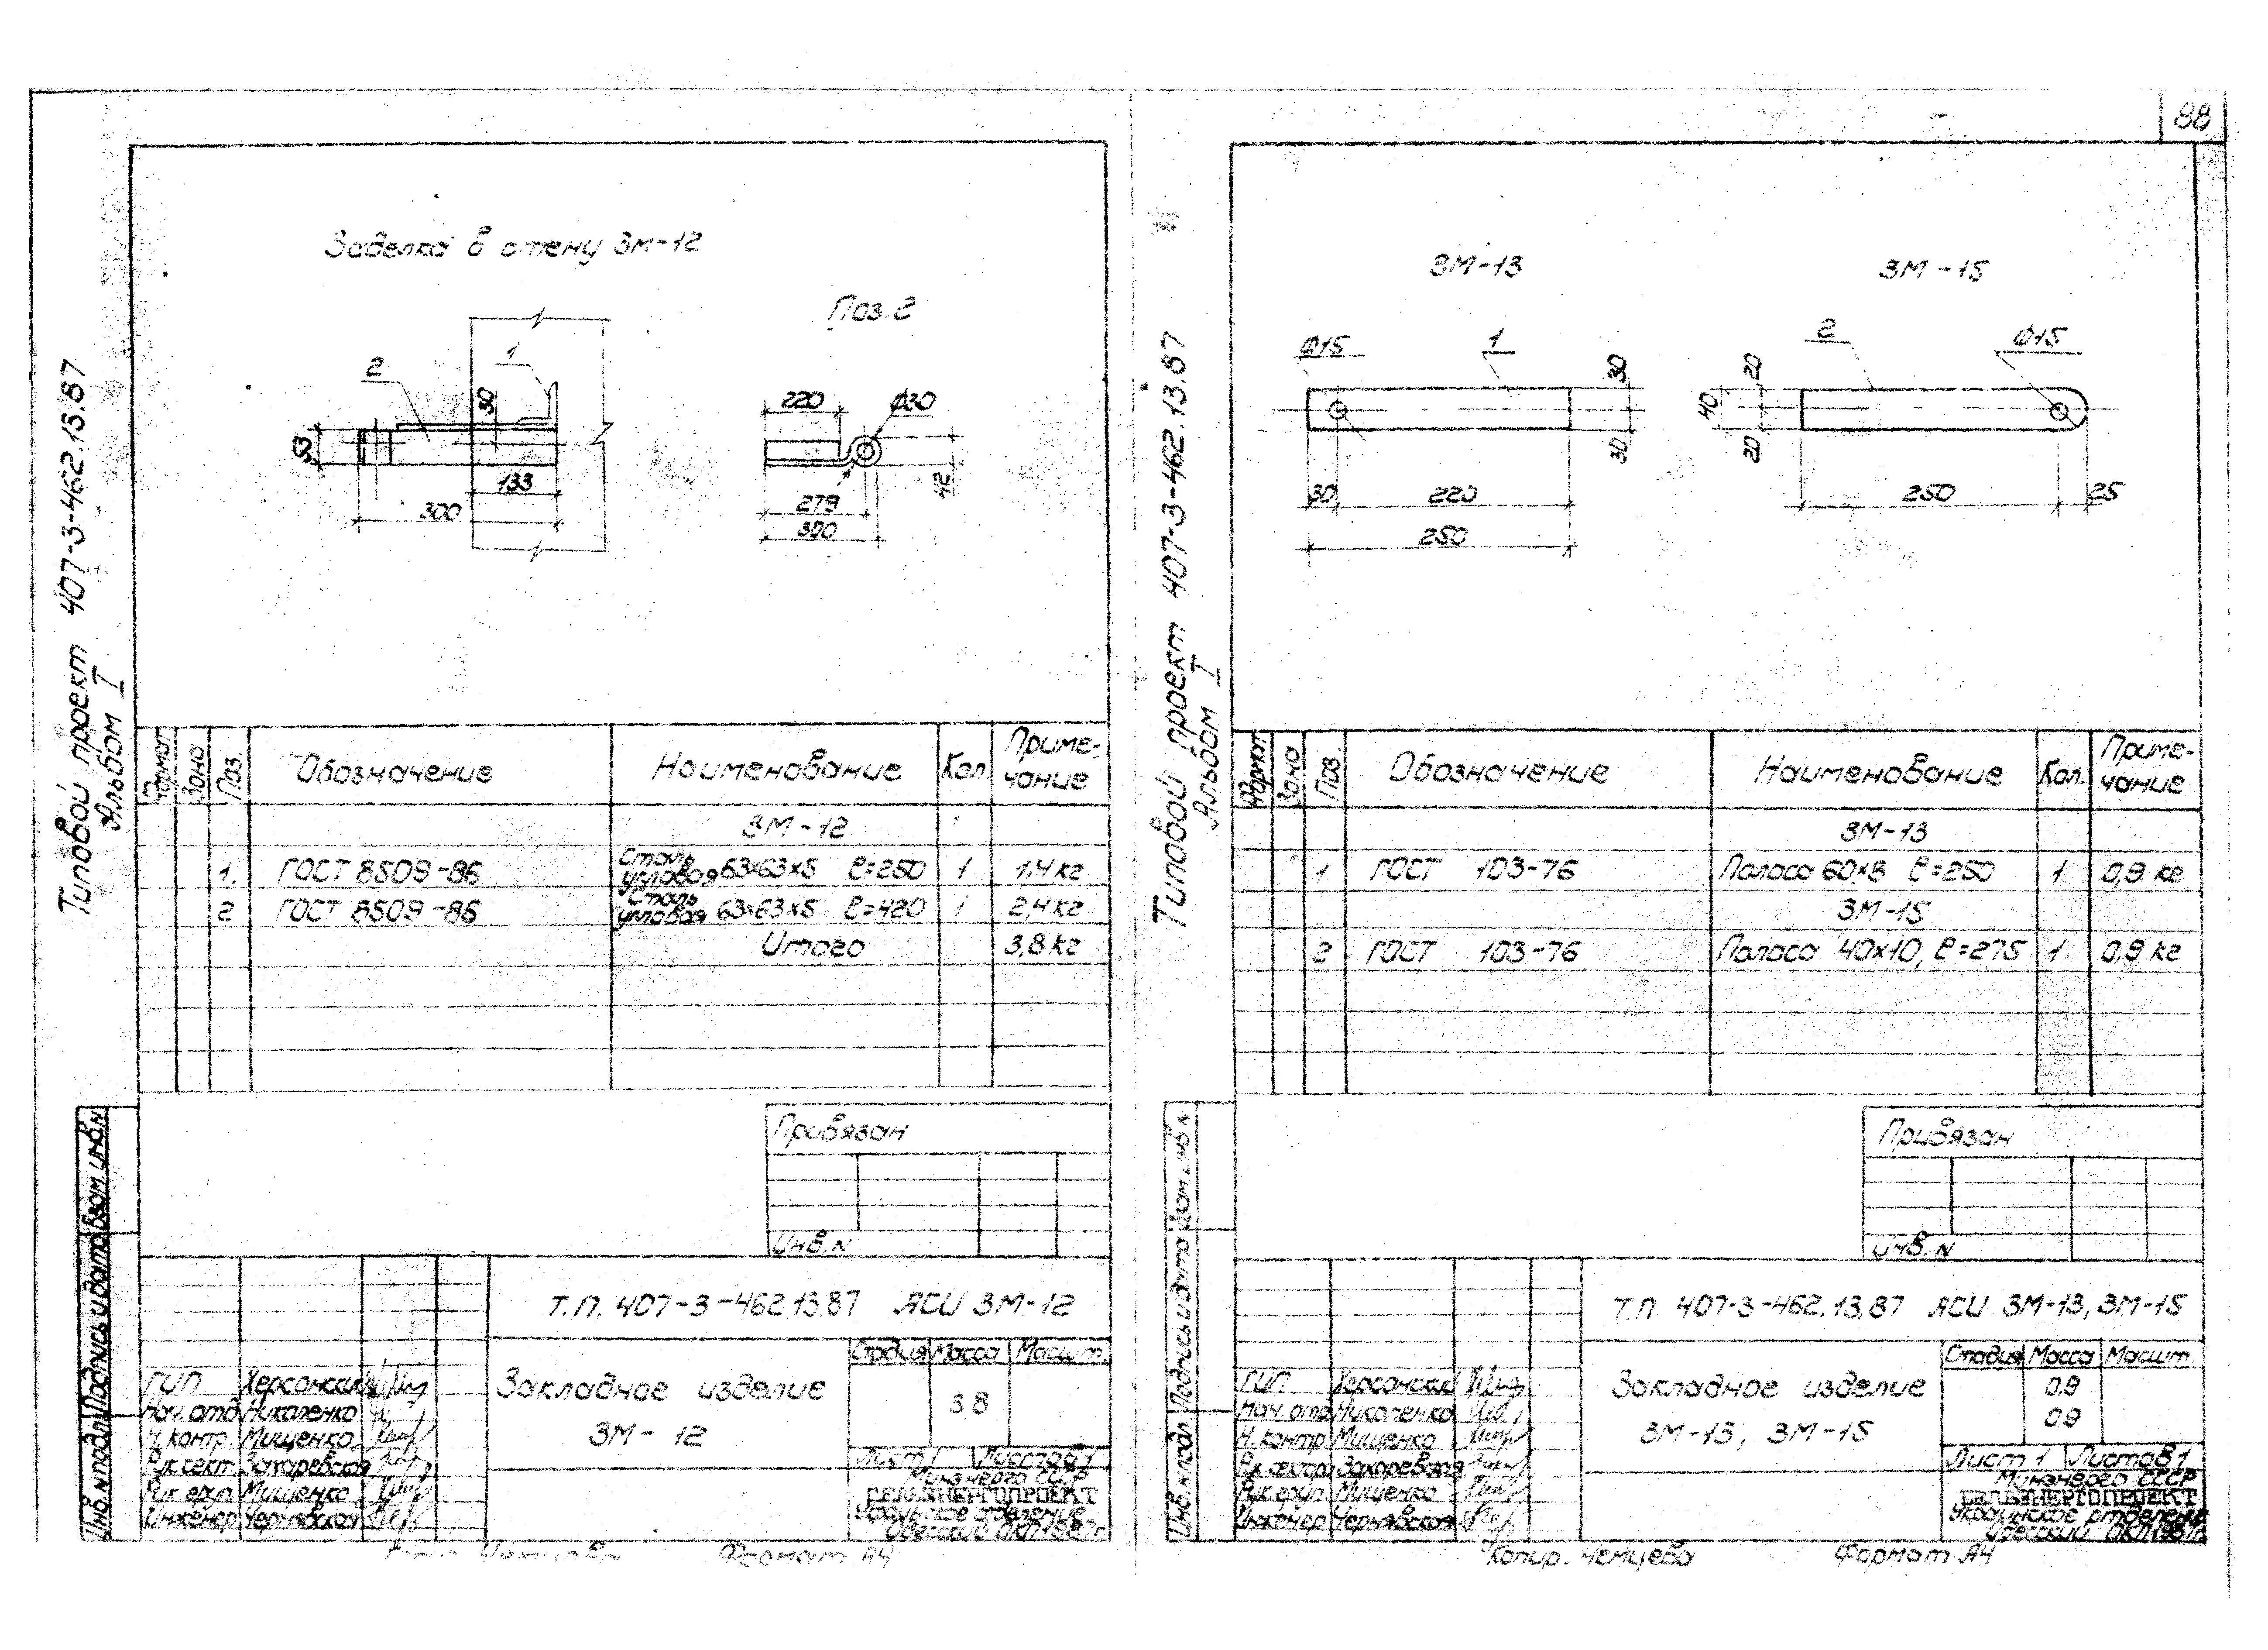 88
Типовой проект 407-3-462.13.87
Альбом I
Заделка в стену ЗМ-12
Поз. 2
2
1
30
53
133
300
220
Ф30
279
300
42
Формат
Зона
Поз.
Обозначение
Наименование
Кол.
Приме-
чание
ЗМ-12
1. ГОСТ 8509-86 Сталь угловая 63х63х5 ℓ=250 1 1,4 кг
2 ГОСТ 8509-86 Сталь угловая 63х63х5 ℓ=420 1 2,4 кг
Итого 3,8 кг
Привязан
Инв. N
Инв. N подл. Подпись и дата Взам. инв. N
Т.П. 407-3-462.13.87 АСИ ЗМ-12
Закладное изделие
ЗМ-12
Стадия Масса Масшт.
3,8
Лист 1 Листов 1
ГИП Херсонский
Нач. отд. Николенко
Н. контр. Мищенко
Рук. сект. Захаревская
Рук. груп. Мищенко
Инженер Чернявская
Минэнерго СССР
СЕЛЬЭНЕРГОПРОЕКТ
Украинское отделение
Одесский ОКП 1987г.
Формат А4
Типовой проект 407-3-462.13.87
Альбом I
ЗМ-13
ЗМ-15
Ф15
1
30
30
30
220
250
2
Ф15
20
40
20
250
25
Формат
Зона
Поз.
Обозначение
Наименование
Кол.
Приме-
чание
ЗМ-13
1 ГОСТ 103-76 Полоса 60х8 ℓ=250 1 0,9 кг
ЗМ-15
2 ГОСТ 103-76 Полоса 40х10, ℓ=275 1 0,9 кг
Привязан
Инв. N
Инв. N подл. Подпись и дата Взам. инв. N
Т.П. 407-3-462.13.87 АСИ ЗМ-13, ЗМ-15
Закладное изделие
ЗМ-13, ЗМ-15
Стадия Масса Масшт
0,9
0,9
Лист 1 Листов 1
ГИП Херсонский
Нач. отд. Николенко
Н. контр. Мищенко
Рук. сектора Захаревская
Рук. груп. Мищенко
Инженер Чернявская
Минэнерго СССР
СЕЛЬЭНЕРГОПРОЕКТ
Украинское отделение
Одесский ОКП 1987г.
Копир. Чемцева Формат А4